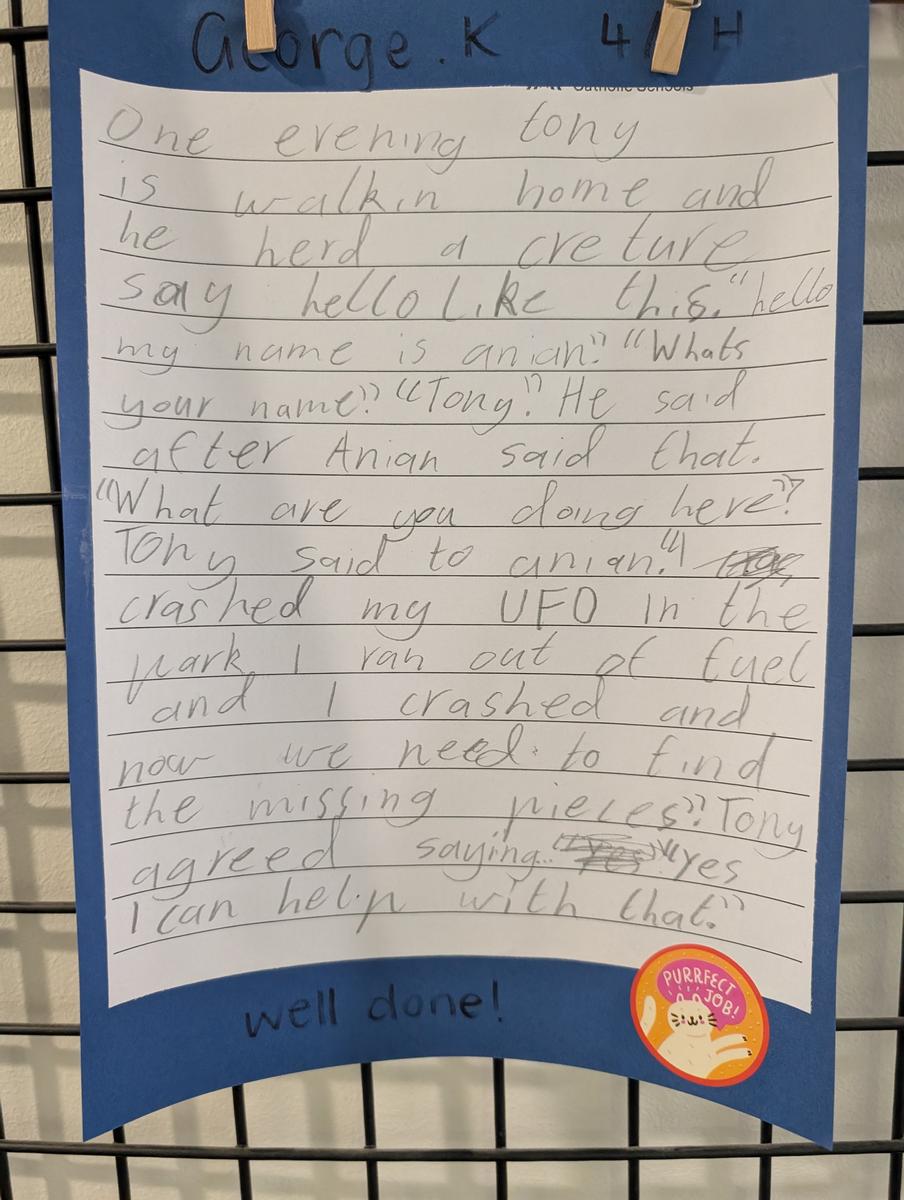 George.K 4/ H
Catholic Schools
One evening tony
is walkin home and
he herd a creture
say hello like this. "hello
my name is anian." "Whats
your name?" "Tony". He said
after Anian said that.
"What are you doing here"?
Tony said to anian. "I
crashed my UFO In the
park I ran out of fuel
and I crashed and
now we need to find
the missing pieces". Tony
agreed saying.. "yes
I can help with that."
well done!
PURRFECT
JOB!